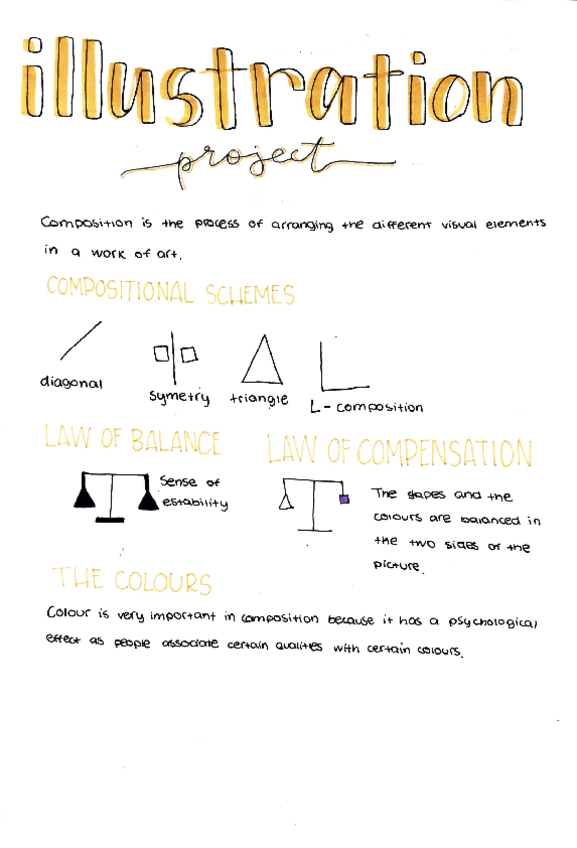 illustration
project
Composition is the process of arranging the different visual elements
in a work of art.
COMPOSITIONAL SCHEMES
diagonal
symetry
triangle
L - composition
LAW OF BALANCE
Sense of
estability
LAW OF COMPENSATION
The shapes and the
colours are balanced in
the two sides of the
picture.
THE COLOURS
Colour is very important in composition because it has a psychological
effect as people associate certain qualities with certain colours.